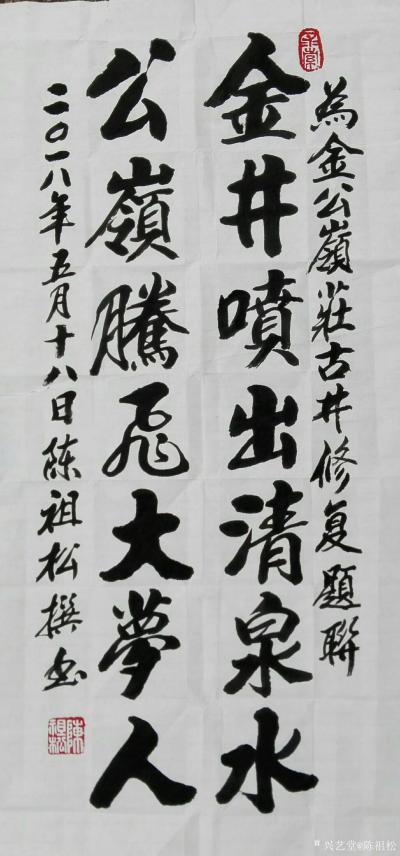 為金公嶺莊古井修复題聯
金井噴出清泉水
公嶺騰飛大夢人
二〇一八年五月十八日陈祖松撰书
陳祖松
兴艺堂@陈祖松